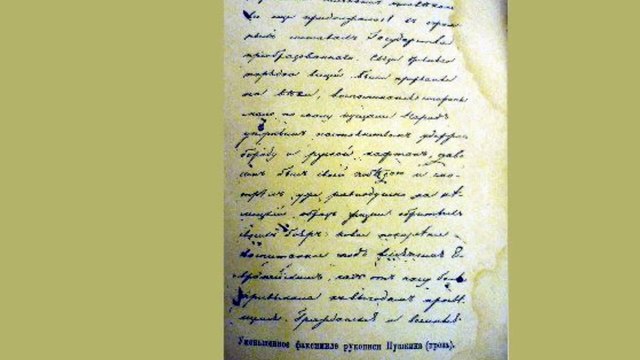 ще продолжалось въ огром
ныхъ составахъ Государства
преобразованнаго. Связи древняго
порядка вещей были прерваны
на вѣки; воспоминанія старины
мало по малу исчезали. Народъ
упорнымъ постоянствомъ удержавъ
бороду и русской кафтанъ, дово
ленъ былъ своей побѣдою и смо
трѣлъ уже равнодушно на нѣ
мецкій образъ жизни обритыхъ
своихъ бояръ. Новое поколѣніе
воспитанное подъ вліяніемъ Ев
ропейскимъ, часъ отъ часу болѣе
привыкало къ выгодамъ просвѣ
щенія. Гражданскіе и военные
Уменьшенное факсимиле рукописи Пушкина (проза).